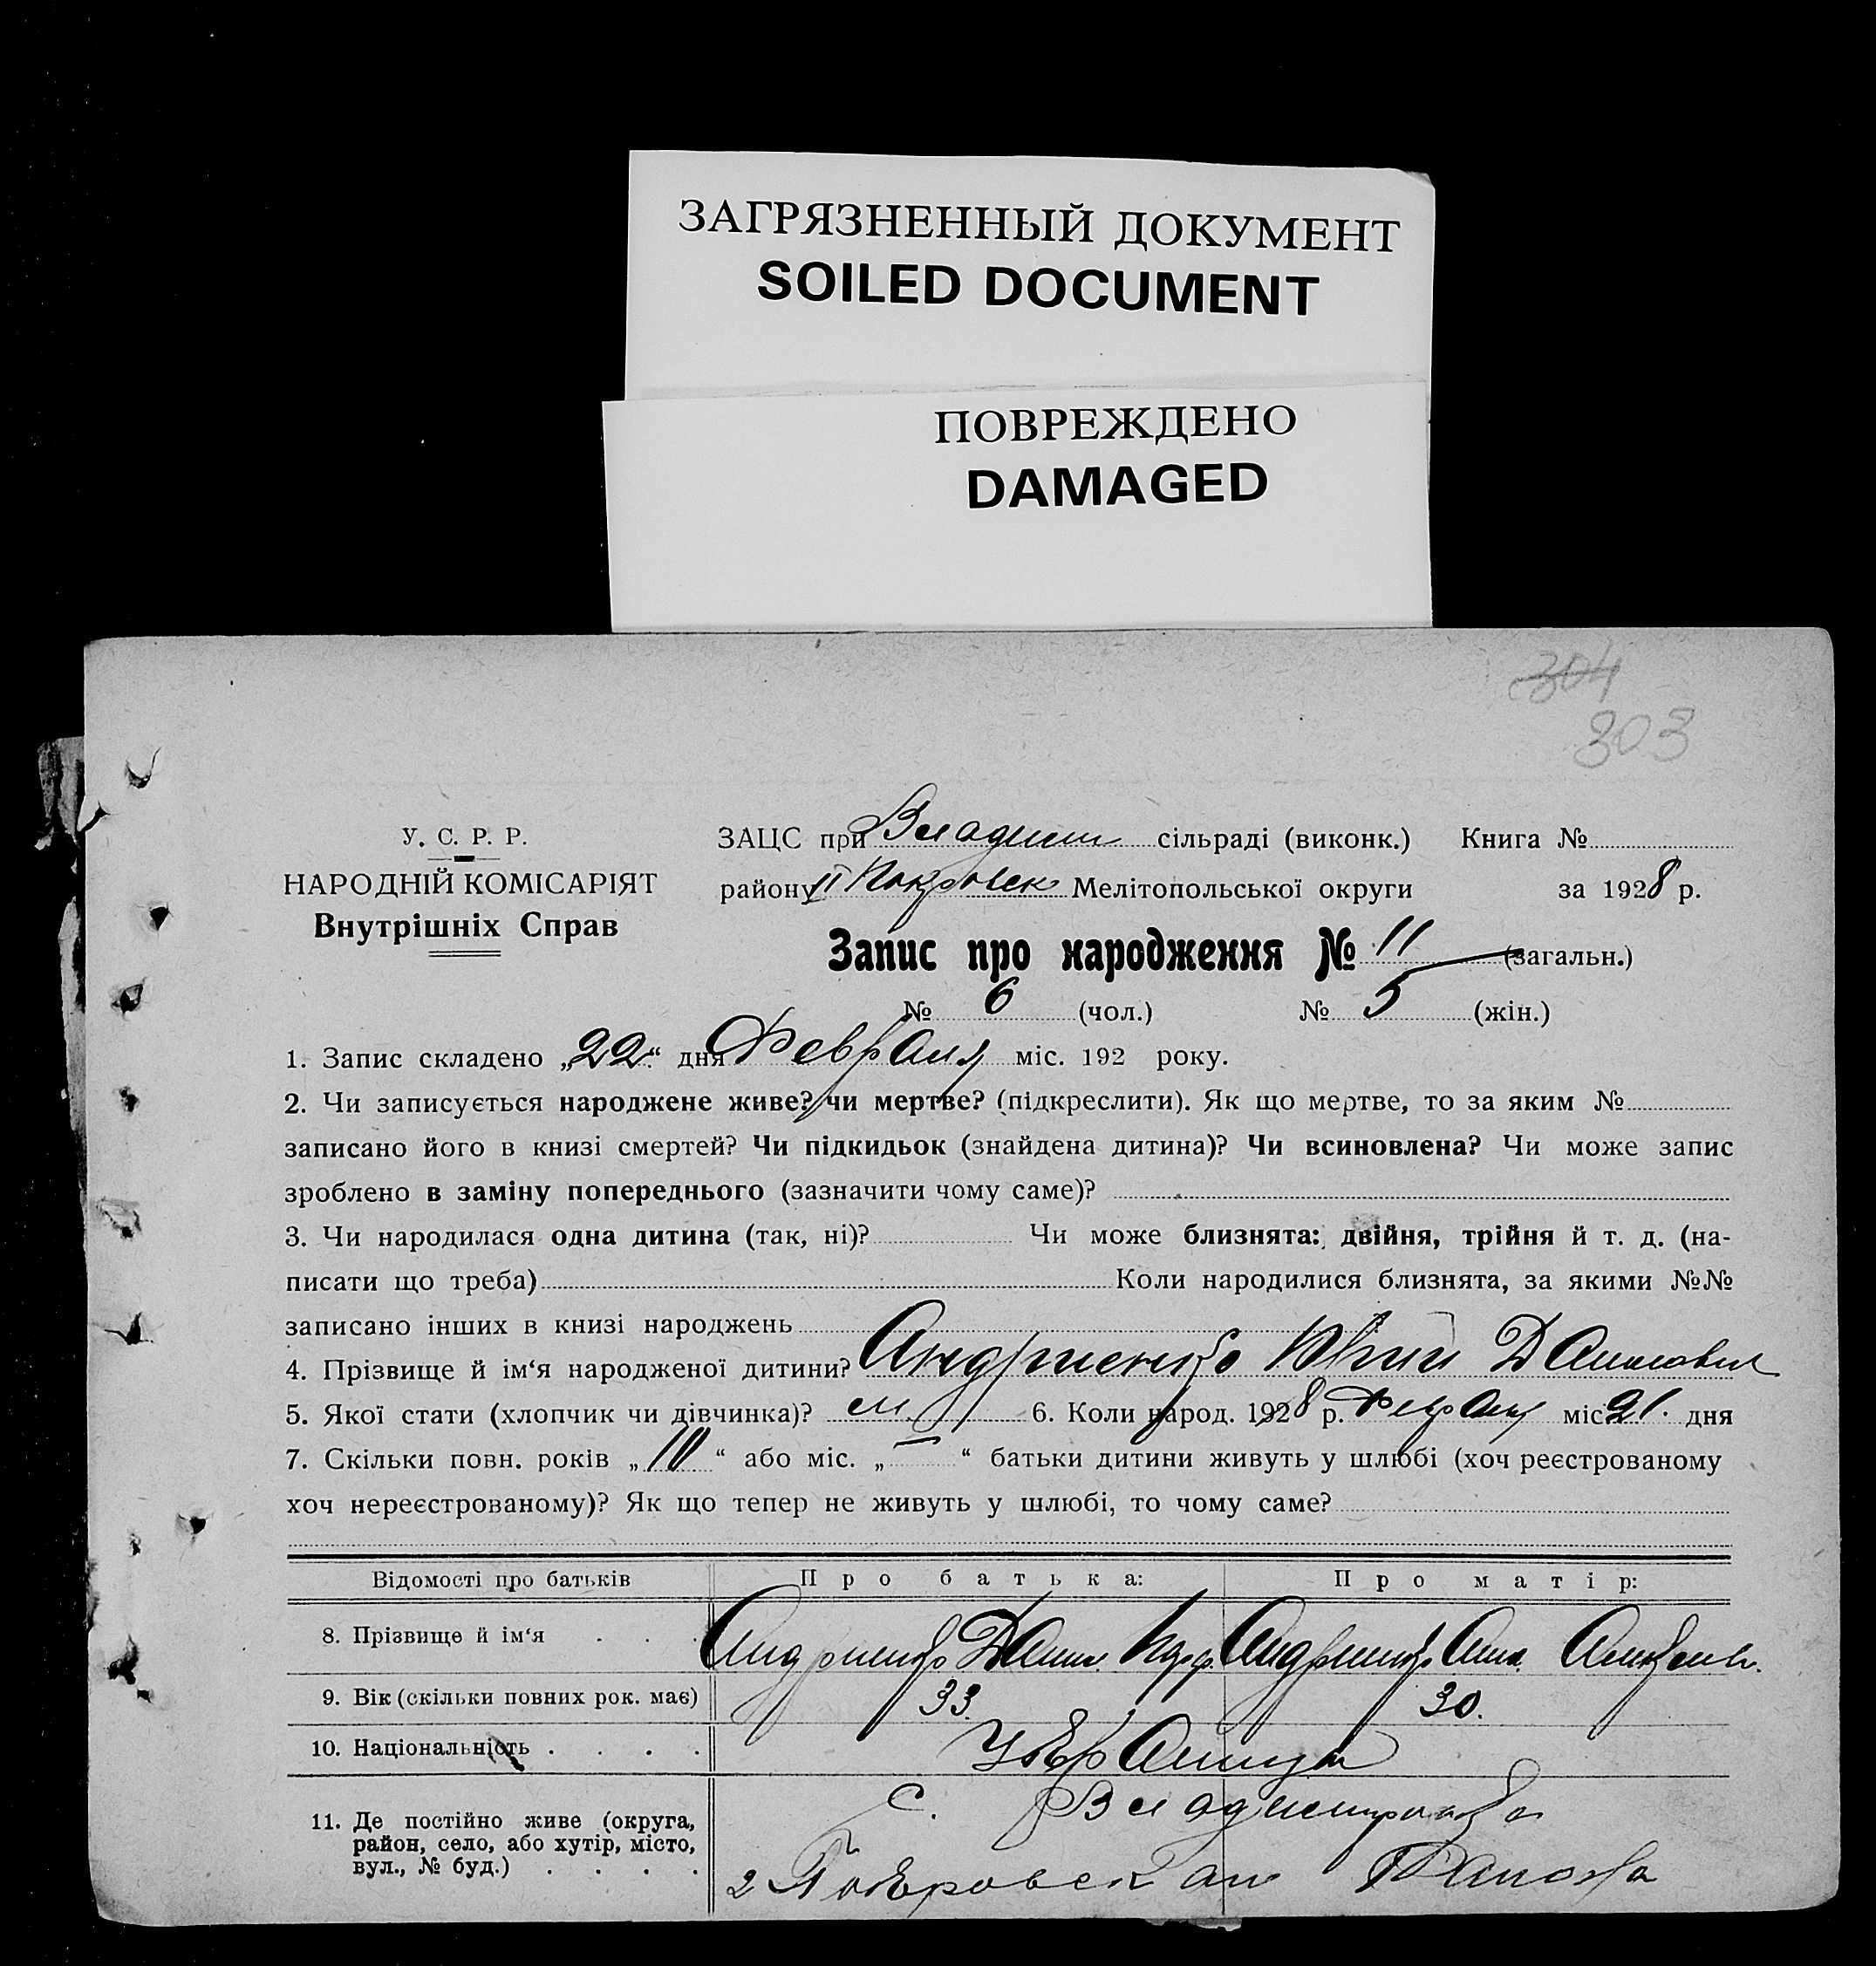 ЗАГРЯЗНЕННЫЙ ДОКУМЕНТ
SOILED DOCUMENT
ПОВРЕЖДЕНО
DAMAGED
304
303
У. С. Р. Р.
НАРОДНІЙ КОМІСАРІЯТ
Внутрішніх Справ
ЗАЦС при Владим сільраді (виконк.) Книга №
району II Покровск Мелітопольської округи за 1928 р.
Запис про народження № 11 (загальн.)
№ 6 (чол.) № 5 (жін.)
1. Запис складено „22“ дня Февраля міс. 192 року.
2. Чи записується народжене живе? чи мертве? (підкреслити). Як що мертве, то за яким №
записано його в книзі смертей? Чи підкидьок (знайдена дитина)? Чи всиновлена? Чи може запис
зроблено в заміну попереднього (зазначити чому саме)?
3. Чи народилася одна дитина (так, ні)? Чи може близнята: двійня, трійня й т. д. (на-
писати що треба) Коли народилися близнята, за якими №№
записано інших в книзі народжень
4. Прізвище й ім‘я народженої дитини? Андриенко Юрий Данилович
5. Якої стати (хлопчик чи дівчинка)? м. 6. Коли народ. 1928 р. Февраля міс. 21. дня
7. Скільки повн. років „10“ або міс. „—“ батьки дитини живуть у шлюбі (хоч реєстрованому
хоч нереєстрованому)? Як що тепер не живуть у шлюбі, то чому саме?
Відомості про батьків Про батька: Про матір:
8. Прізвище й ім‘я . . . Андриенко Данил. Андриенко Анна
9. Вік (скільки повних рок. має) 33. 30.
10. Національність . . . . Украинцы
11. Де постійно живе (округа,
район, село, або хутір, місто,
вул., № буд.) . . . .
с. Владимировка
2 Покровского района